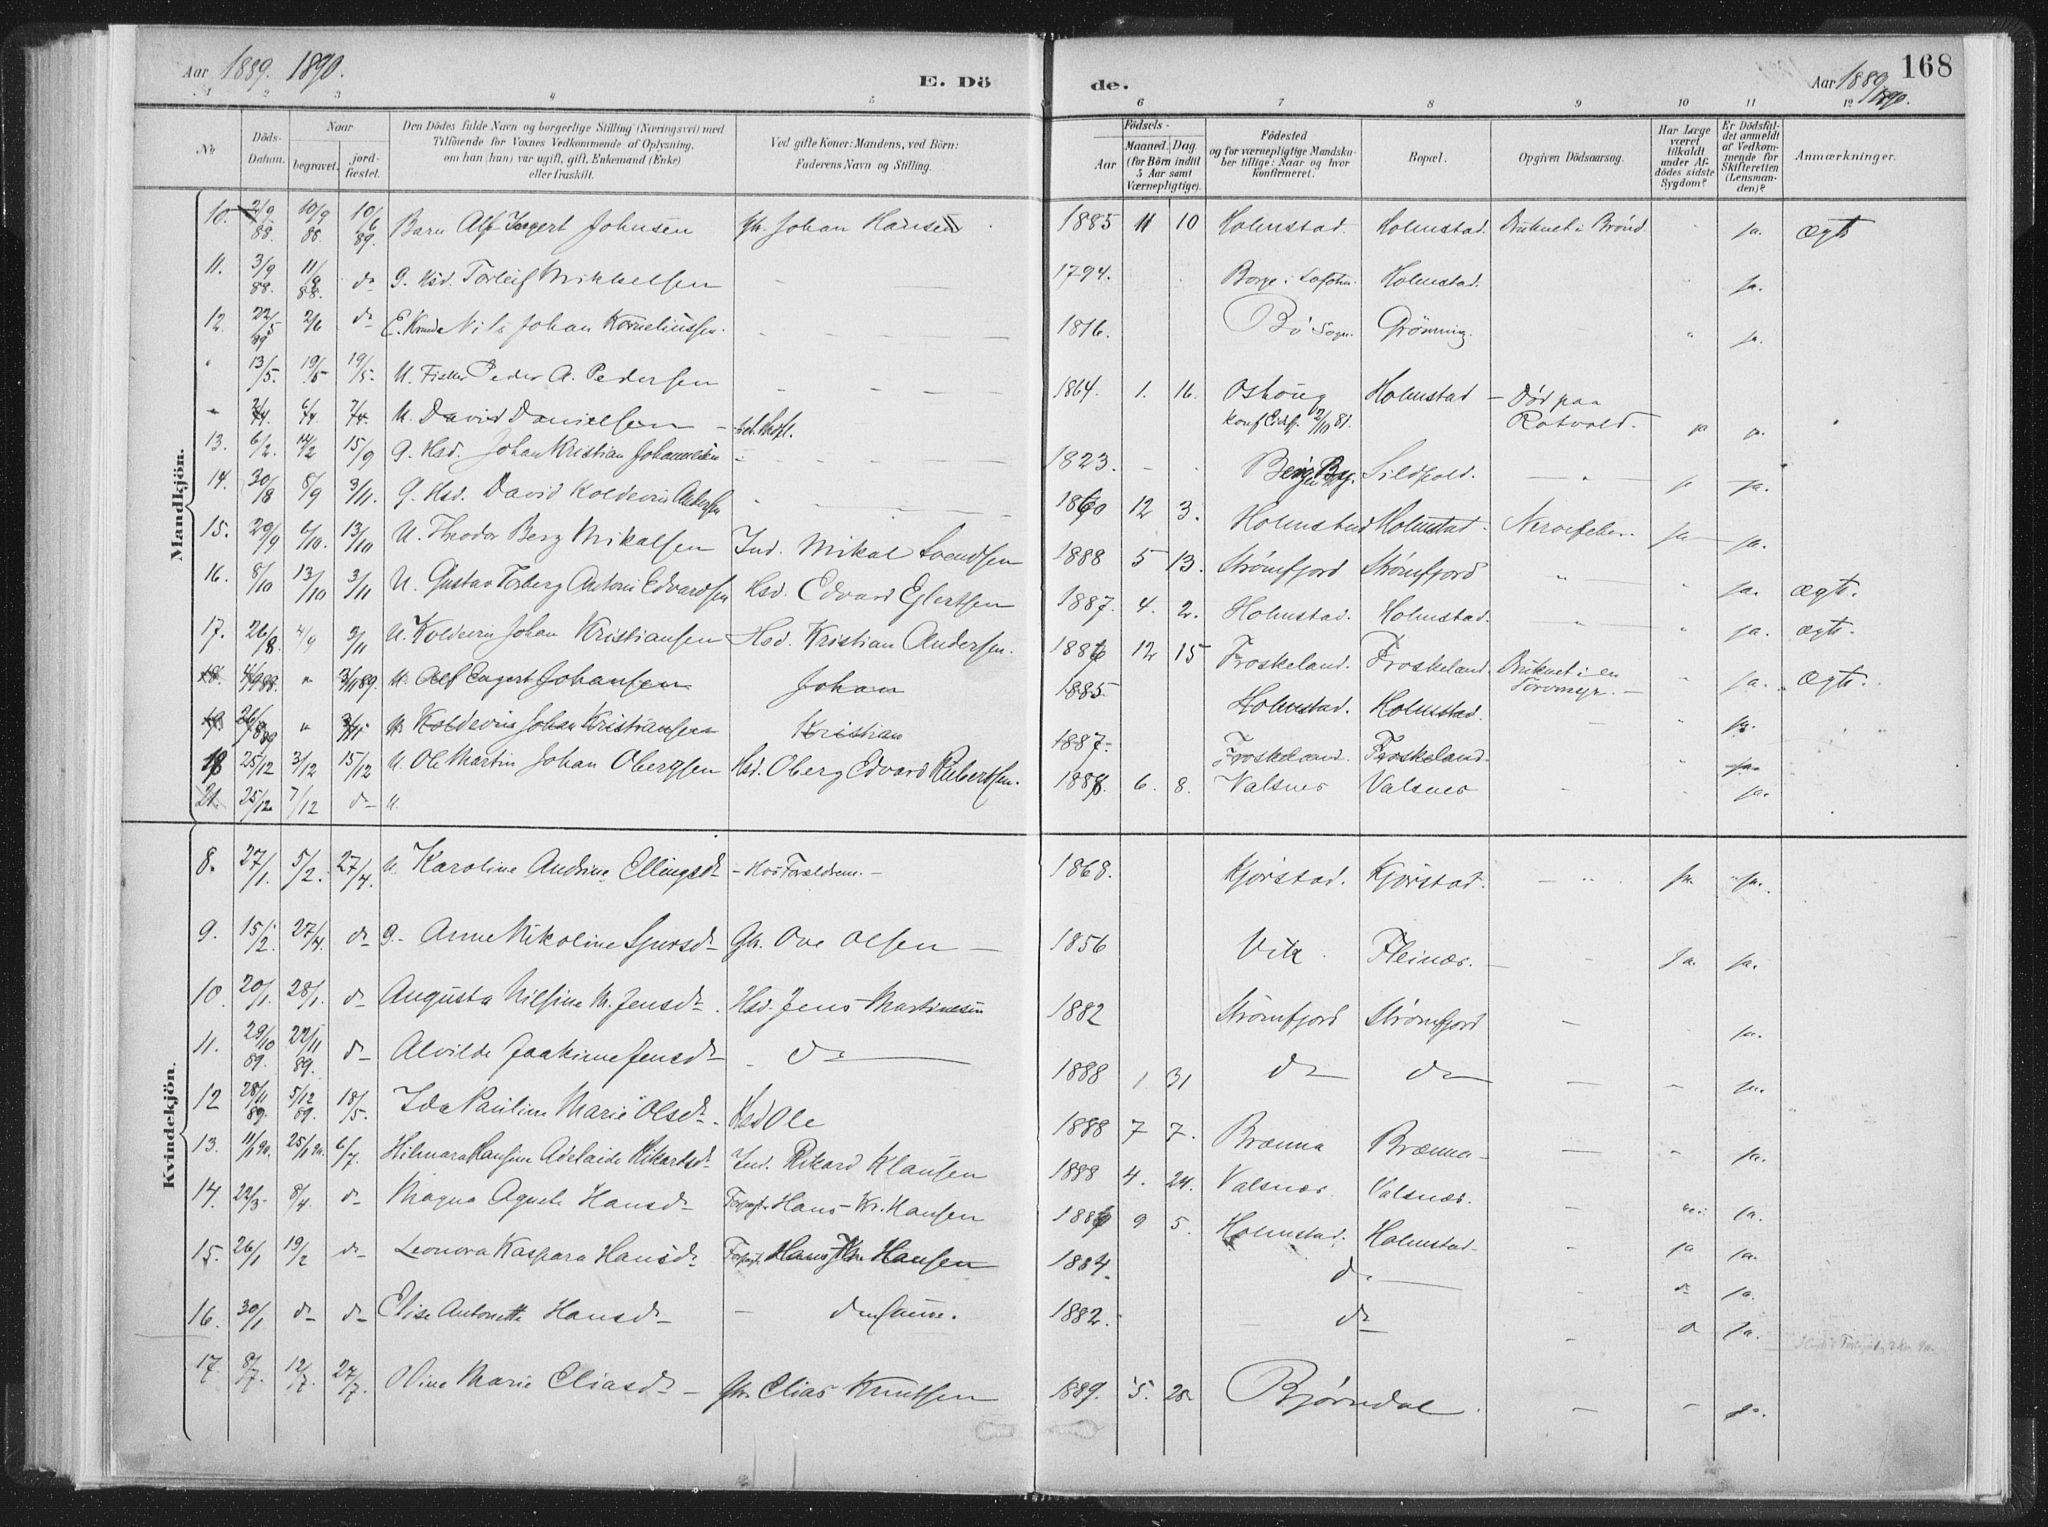 Aar 1889. 1890.
E. Dö
de.
Aar 1889/1890.
168
1 2 3 4 5 6 7 8 9 10 11 12
No.
Döds-Datum.
Naar
begravet.
jord-fæstet.
Den Dödes fulde Navn og borgerlige Stilling (Næringsvei) med
Tilföiende for Voxnes Vedkommende af Oplysning,
om han (hun) var ugift, gift, Enkemand (Enke)
eller fraskilt.
Ved gifte Koner: Mandens, ved Börn:
Faderens Navn og Stilling.
Födsels-
Aar
Maaned. Dag
(for Börn indtil
5 Aar samt
Værnepligtige).
Födested
og for værnepligtige Mandska-
ber tillige: Naar og hvor
konfirmeret.
Bopæl.
Opgiven Dödsaarsag.
Har Læge
været
tilkaldt
under Af-
dödes sidste
Sygdom?
Er Dödsfal-
det anmeldt
af Vedkom-
mende for
Skifteretten
(Lensman-
den)?
Anmærkninger.
Mandkjön.
10. 2/9 88. 10/9 88 10/6 89. Barn Alf Ingert Johnsen Gbr. Johan Hansen 1885 11 10 Holmstad. Holmstad. Druknet i Brönd. ja. ægte
11. 3/9 88. 11/9 88. do G. Hsd. Torleif Mikkelsen 1794. Borge i Lofoten. Holmstad. ja.
12. 22/5 89 2/6 do E. Nils Johan Korneliussen. 1816. Bö Sogn. Grömming. ja.
" 13/5. 19/5 19/5. U. Fisker Peder A. Pedersen 1864. 1. 16. Oshaug Holmstad - Död paa
Konf. Eidsf. 2/10 81. Rotvold. ja ja.
" 2/4. 6/4 7/4. U. David Danielsen
13. 6/2. 14/2 15/9 G. Hsd. Johan Kristian Johannesen 1823. Sildpold. ja ja.
14. 30/8 8/9 3/11. G. Hsd. David Koldevin Andersen 1860 12 3. Holmstad Holmstad. Nervefeber. ja ja.
15. 29/9 6/10. 13/10 U. Theodor Berg Mikalsen Ind. Mikal Svendsen 1888 5 13. Strömfjord Strömfjord " ja. ægte.
16. 8/10 13/10 3/11 U. Gustav Torberg Antoni Edvardsen Hsd. Edvard Eglertsen 1887. 4. 2. Holmstad. Holmstad. ja. ægte.
17. 26/8. 4/9 3/11 U. Koldevin Johan Kristiansen Hsd. Kristian Andersen. 1886 12 15 Froskeland. Froskeland. Druknet i en
Torvmyr. ja. ægte.
18. 4/9 88. " 3/11 89. U. Alf Engert Johansen Johan 1885. Holmstad. Holmstad. ja.
19. 26/8 89 " 3/11 U. Koldevin Johan Kristiansen Kristian 1887. Froskeland. Froskeland. ja.
18 25/12 3/12 15/12 U. Ole Martin Johan Obergsen Hsd. Oberg Edvard Rubertsen. 1888. 6. 8. Valsnes Valsnes ja.
21. 25/12. 7/12 do U.
Kvindekjön.
8. 27/1. 5/2. 27/4. U. Karoline Andrine Ellingsdr - Hos Forældrene. - 1868. Kjörstad. Kjörstad. ja. ja.
9. 15/2. 27/4. do G. Anne Nikoline Sjursdr Gbr. Ove Olsen 1856 Vik. Fleines. ja. ja.
10. 20/1. 28/1. do Augusta Nilsine M. Jensdr. Hsd. Jens Martinsen 1882 Strömfjord Strömfjord ja.
11. 29/10 89. 22/11 89. do Alvilde Joakime Jensdr do 1888 1 31 do do ja.
12 28/11 89. 5/12 89. 18/5. Ida Pauline Marie Olsdr. Hsd Ole 1888 7 7. Brænna Brænna ja.
13. 11/1 90. 25/1 90. 6/7. Hilmara Hansine Adelaide Rikartsdr Ind. Rikard Klausen 1888 4. 24. Valsnes. Valsnes. ja.
14. 22/3. 8/4. do Magna Agnete Hansdr Hans Kr. Hansen 1889 9 5. Holmstad. Holmstad. ja ja.
15. 26/1 19/2 do Leonora Kaspara Hansdr. Hans Kr. Hansen 1884. do do ja.
16. 30/1 do do Elise Antonette Hansdr - den samme. 1882. do ja.
17. 8/7. 12/7. 27/7. Oline Marie Eliasdr - Gbr. Elias Knutsen 1889. 5. 28. Björndal. ja.